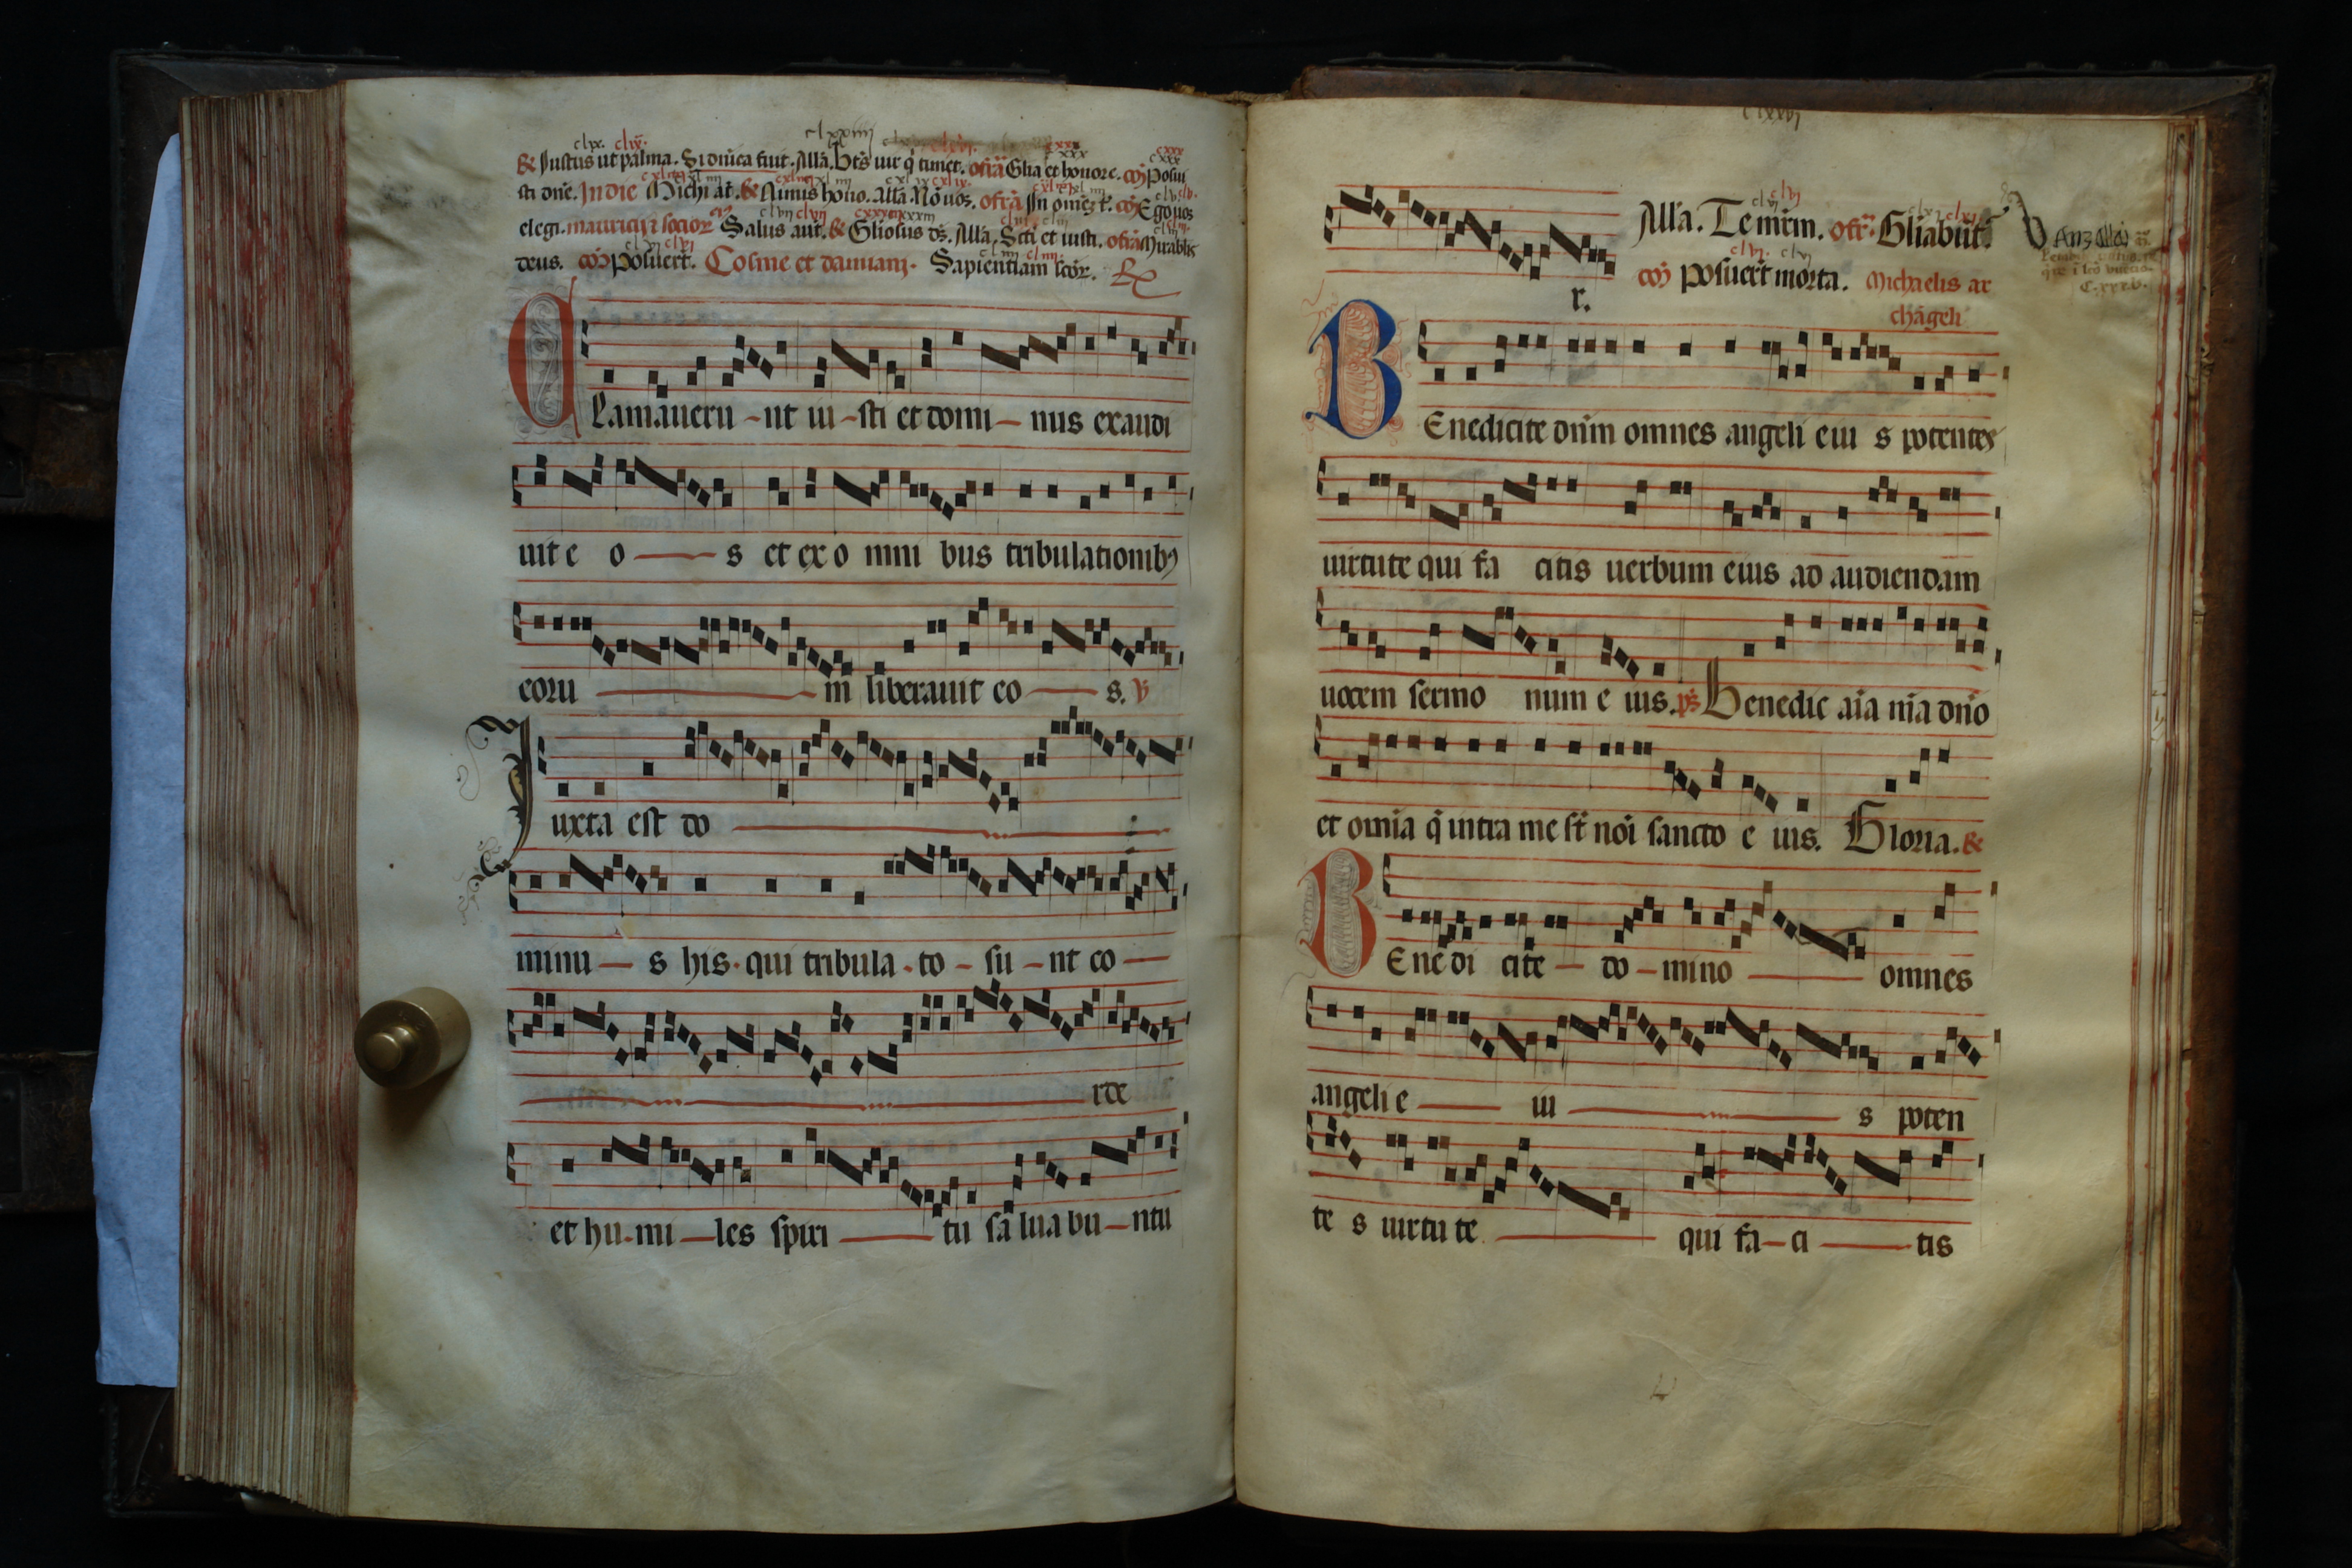 clxxiiii
clxx. clx.
℟ Justus ut palma. Si dn̄ica fuit. Allā. Bt̄s uir q̇ timet. ofrā Glīa et honore. cōm̄ Posui
sti dn̄e. In die Michi āt. ℟ Nimis hono. Allā. Nō uos. ofrā In om̄ez t̄. cōm̄ Ego uos
elegi. mauricii ⁊ socior Salus aut̄. ℟ Gl̄iosus ds̄. Allā. Sc̄ti et iusti. ofrā Mirabilis
deus. cōm̄ Posuert̄. Cosme et damiani. Sapientiam scōr.
Clamaueru - nt iu - sti et domi - nus exaudi
uit e o - s et ex o mni bus tribulationibꝫ
eoru - m liberauit eo - s. ℣
Juxta est do
minu - s his. qui tribula. to - su - nt co -
rde
et hu. mi - les spiri - tu sa lua bu - ntu
clxxvj
r.
Allā. Te mr̄m. ofr̄. Gl̄iabūt.
cōm̄ Posuert̄ morta. Michaelis ar
chāgeli
Benedicite dn̄m omnes angeli eiu s potentes
uirtute qui fa citis uerbum eius ad audiendam
uocem sermo num e ius. ps̄ Benedic aīa mīa dn̄o
et omīa q̄ intra me st̄ noī sancto e ius. Gloria. ℟
Bene di cite - do - mino - omnes
angeli e - iu - s poten
te s uirtu te - qui fa - ci - tis